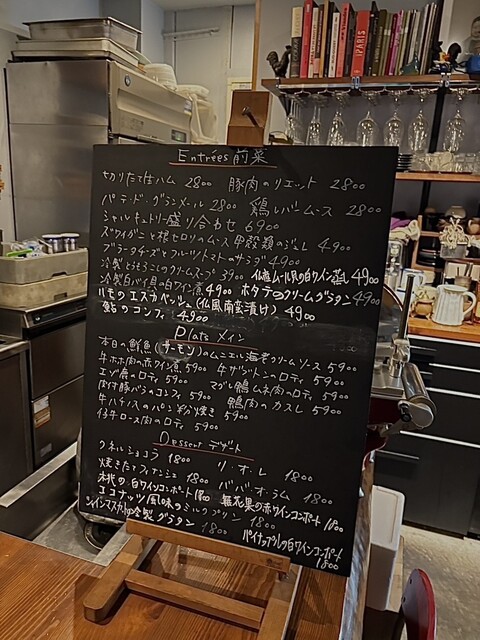 PARIS
Entrées 前菜
切りたて生ハム 2800 豚肉のリエット 2800
パテ・ド・グランメール 2800 鶏レバームース 2800
シャルキュトリー盛り合わせ 6900
ズワイガニと根セロリのムース 甲殻類のジュレ 4900
ブラータチーズとフルーツトマトのサラダ 4900
冷製とうもろこしのクリームスープ 3900 仏産ムール貝の白ワイン蒸し 4900
冷製白バイ貝の白ワイン煮 4900 ホタテのクリームグラタン 4900
のエスカベッシュ(仏風南蛮漬け) 4900
鮎のコンフィ 4900
Plats メイン
本日の鮮魚(サーモン)のムニエル 海老クリームソース 5900
牛ホホ肉の赤ワイン煮 5900 牛ザブトンのロティ 5900
エゾ鹿のロティ 5900 マグレ鴨ムネ肉のロティ 5900
肉付豚バラのコンフィ 5900 鴨肉のカスレ 5900
牛ハチノスのパン粉焼き 5900
仔牛ロース肉のロティ 5900
Dessert デザート
クネルショコラ 1800 リ・オ・レ 1800
焼きたてフィナンシェ 1800 ババ・オ・ラム 1800
桃の白ワインコンポート 1800 無花果の赤ワインコンポート 1800
ココナッツ風味のミルクプリン 1800
シャインマスカットの冷製グラタン 1800 パイナップルの白ワインコンポート
1800